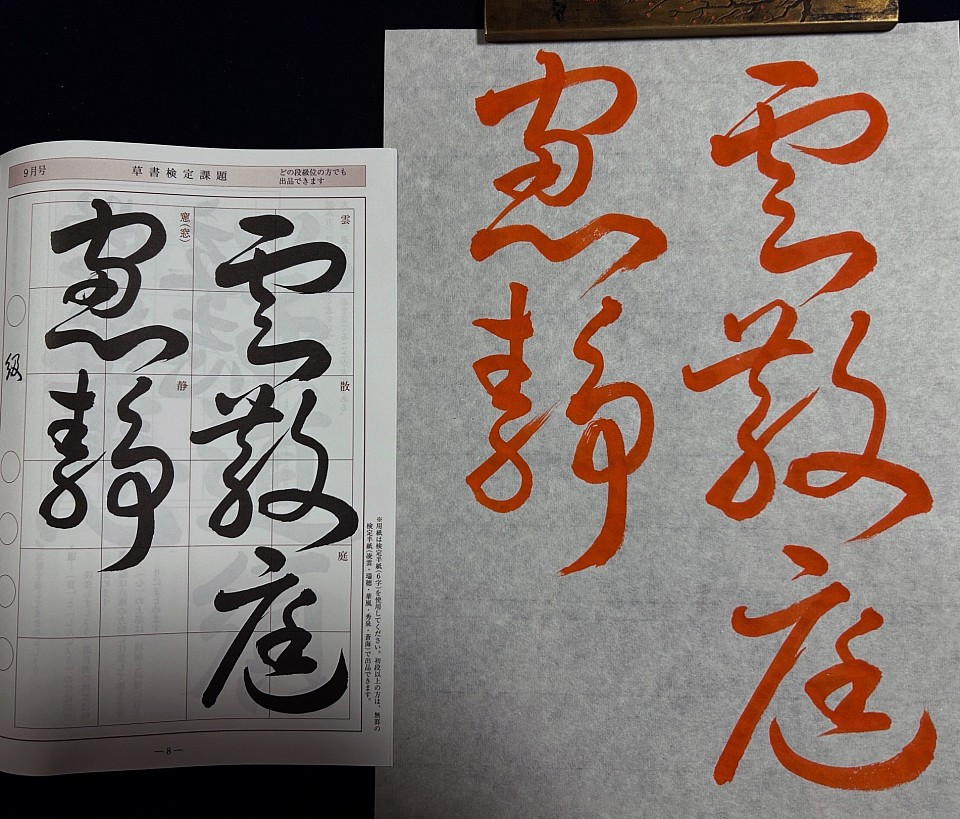 9月号
草書検定課題
どの段級位の方でも
出品できます
雲
散
庭
窻(窓)
静
雲散庭
窻静
級
※用紙は検定半紙(6字)を使用してください。初段以上の方は、無罫の
検定半紙(凌雲・瑞穂・華風・秀泉・蒼海)で出品できます。
—8—
雲散庭
窻静